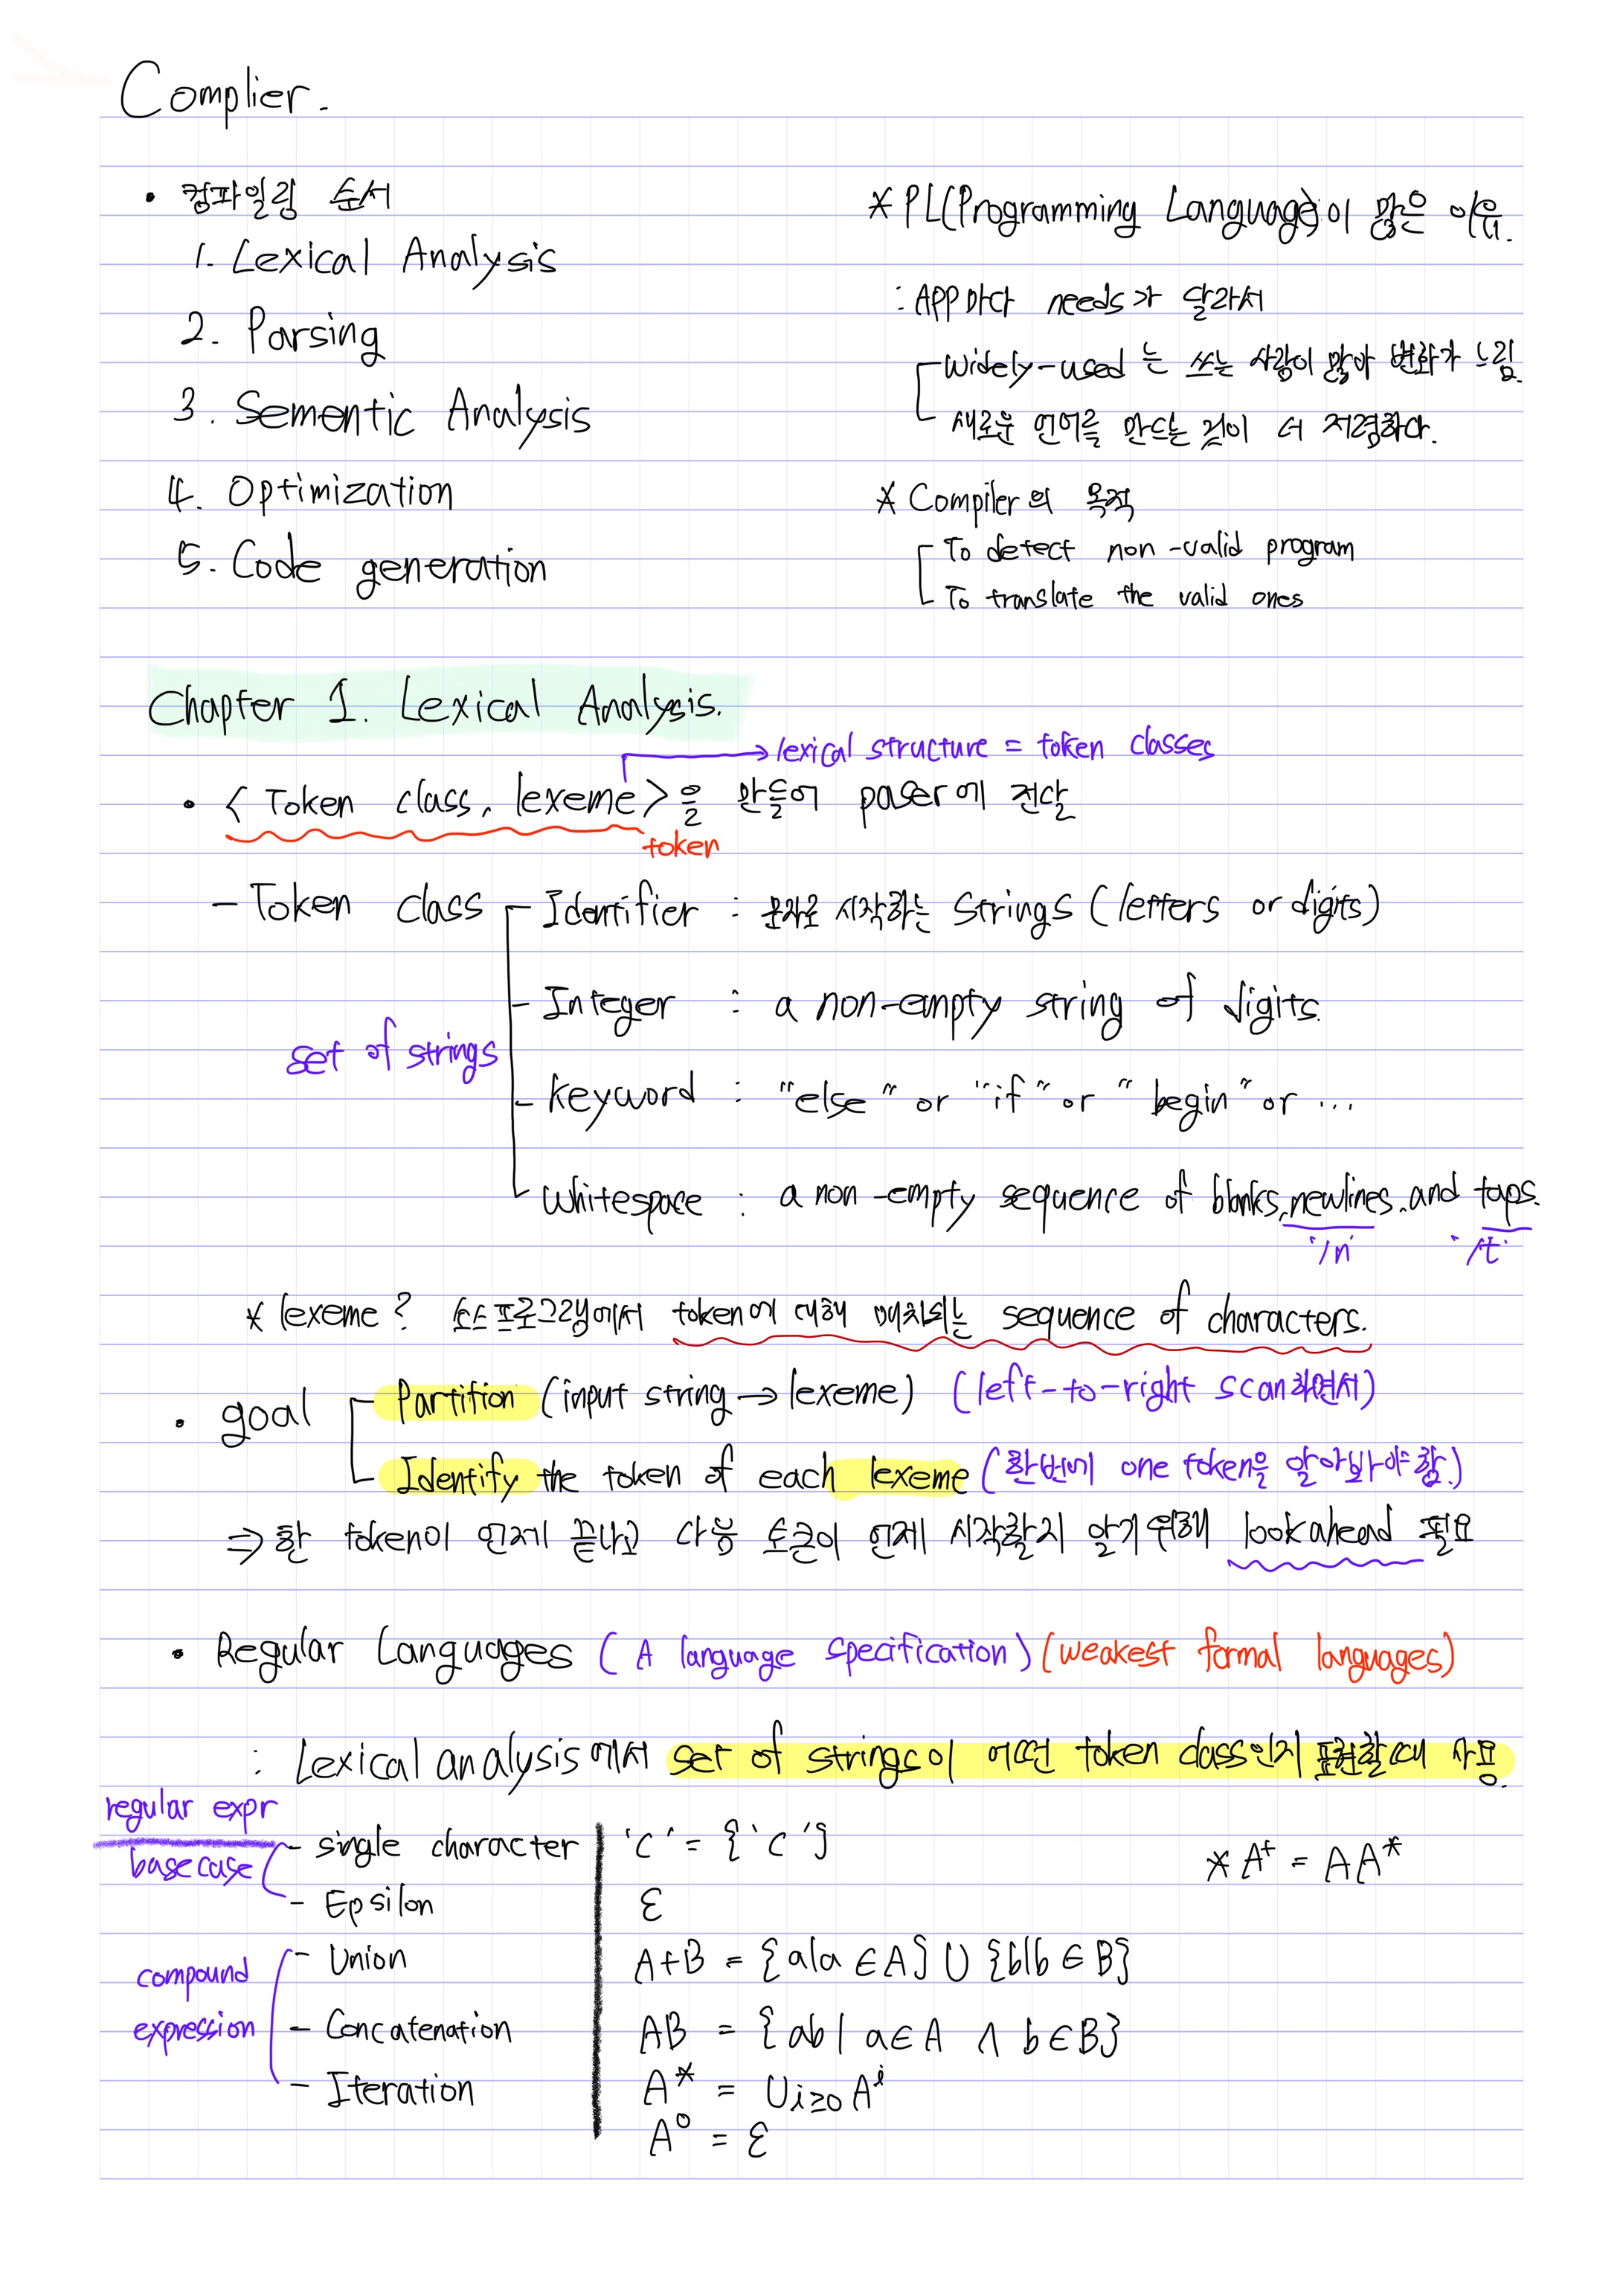 Complier.
• 컴파일링 순서
1. Lexical Analysis
2. Parsing
3. Sementic Analysis
4. Optimization
5. Code generation
* PL(Programming Language)이 많은 이유.
: APP마다 needs가 달라서
Widely-used 는 쓰는 사람이 많아 변화가 느림.
새로운 언어를 만드는 것이 더 저렴하다.
* Compiler의 목적
To detect non-valid program
To translate the valid ones
Chapter 1. Lexical Analysis.
→ lexical structure = token classes
• < Token class, lexeme>을 만들어 paser에 전달
token
- Token class
set of strings
- Identifier : 문자로 시작하는 Strings (letters or digits)
- Integer : a non-empty string of digits.
- keyword : "else" or "if" or "begin" or ...
- Whitespace : a non-empty sequence of blanks, newlines, and taps.
'/n' '/t'
* lexeme? 소스프로그램에서 token에 대해 매치되는 sequence of characters.
• goal
Partition (input string → lexeme) (left-to-right scan하면서)
Identify the token of each lexeme (한번에 one token을 알아봐야함.)
⇒ 한 token이 언제 끝나고 다음 토큰이 언제 시작할지 알기위해 lookahead 필요
• Regular Languages (A language specification) (weakest formal languages)
: Lexical analysis에서 set of strings이 어떤 token class인지 표현할때 사용.
regular expr
base case
- single character 'c' = {'c'}
* A⁺ = AA*
- Epsilon ε
compound expression
- Union A+B = {a|a ∈ A} ∪ {b|b ∈ B}
- Concatenation AB = {ab | a∈A ∧ b∈B}
- Iteration A* = ∪i≥0 Aⁱ
A⁰ = ε